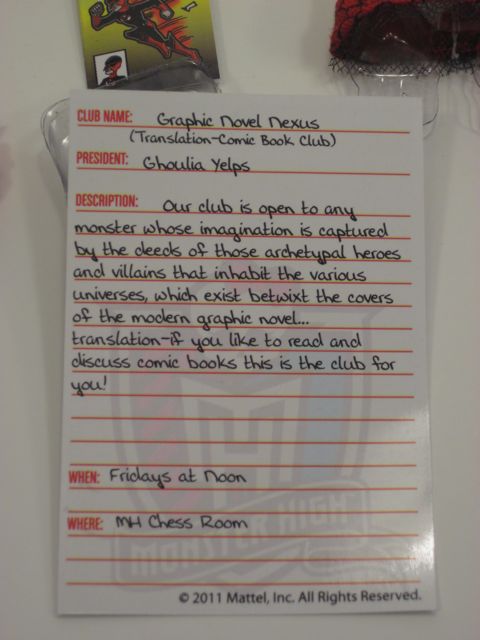 CLUB NAME: Graphic Novel Nexus
(Translation-Comic Book Club)
PRESIDENT: Ghoulia Yelps
DESCRIPTION: Our club is open to any
monster whose imagination is captured
by the deeds of those archetypal heroes
and villains that inhabit the various
universes, which exist betwixt the covers
of the modern graphic novel...
translation-if you like to read and
discuss comic books this is the club for
you!
WHEN: Fridays at Noon
WHERE: MH Chess Room
MONSTER HIGH
© 2011 Mattel, Inc. All Rights Reserved.